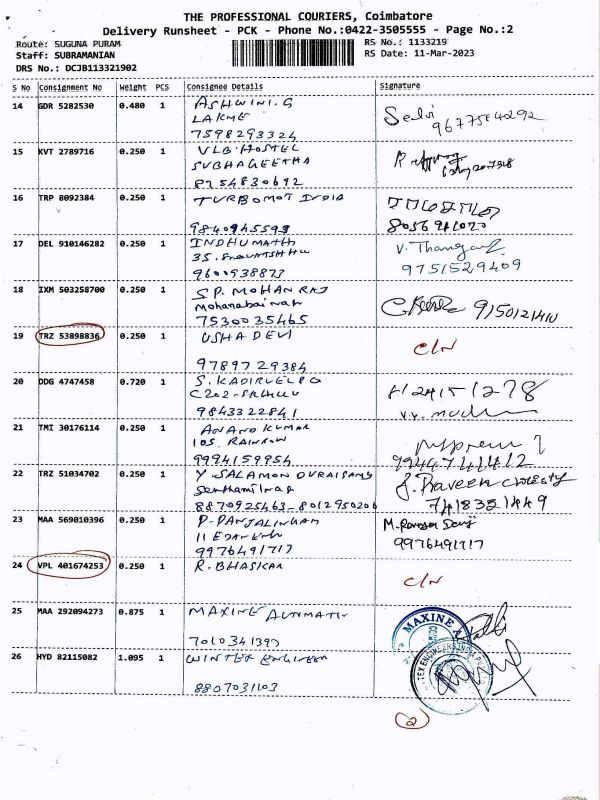 THE PROFESSIONAL COURIERS, Coimbatore
Delivery Runsheet - PCK - Phone No.:0422-3505555 - Page No.:2
Route: SUGUNA PURAM
RS No.: 1133219
Staff: SUBRAMANIAN
RS Date: 11-Mar-2023
DRS No.: DCJB113321902
S No Consignment No Weight PCS Consignee Details Signature
14 GDR 5282530 0.480 1 ASHWINI.G
LAKME
7598293324
Selvi
15 KVT 2789716 0.250 1 VLB-HOSTEL
SUBHAGEETHA
8754830692
16 TRP 8092384 0.250 1 TURBOMOT INDIA
9840945593
17 DEL 910146282 0.250 1 INDHUMATHI
35.
9600938873
V. Thangaraj
9751529409
18 IXM 503258700 0.250 1 S.P. MOHAN RAJ
Mohanabai nagar
7530035465
9150121410
19 TRZ 53898836 0.250 1 USHA DEVI
9789729384
C/N
20 DDG 4747458 0.720 1 S. KADIRVEL
C202-
9843322841
21 TMI 30176114 0.250 1 ANAND KUMAR
105. RAINBOW
9994159954
9944741412
22 TRZ 51034702 0.250 1 Y SALAMON DURAISAMY
Senthamil nagar
8870925463-8012950206
J. Praveen
7418351449
23 MAA 569010396 0.250 1 P-PANJALINGAM
11
9976491717
9976491717
24 VPL 401674253 0.250 1 R. BHASKAR
C/N
25 MAA 292094273 0.875 1 MAXINE AUTOMATION
7010341397
MAXINE A
26 HYD 82115082 1.095 1 WINTEX ENGINEER
8807031103
2